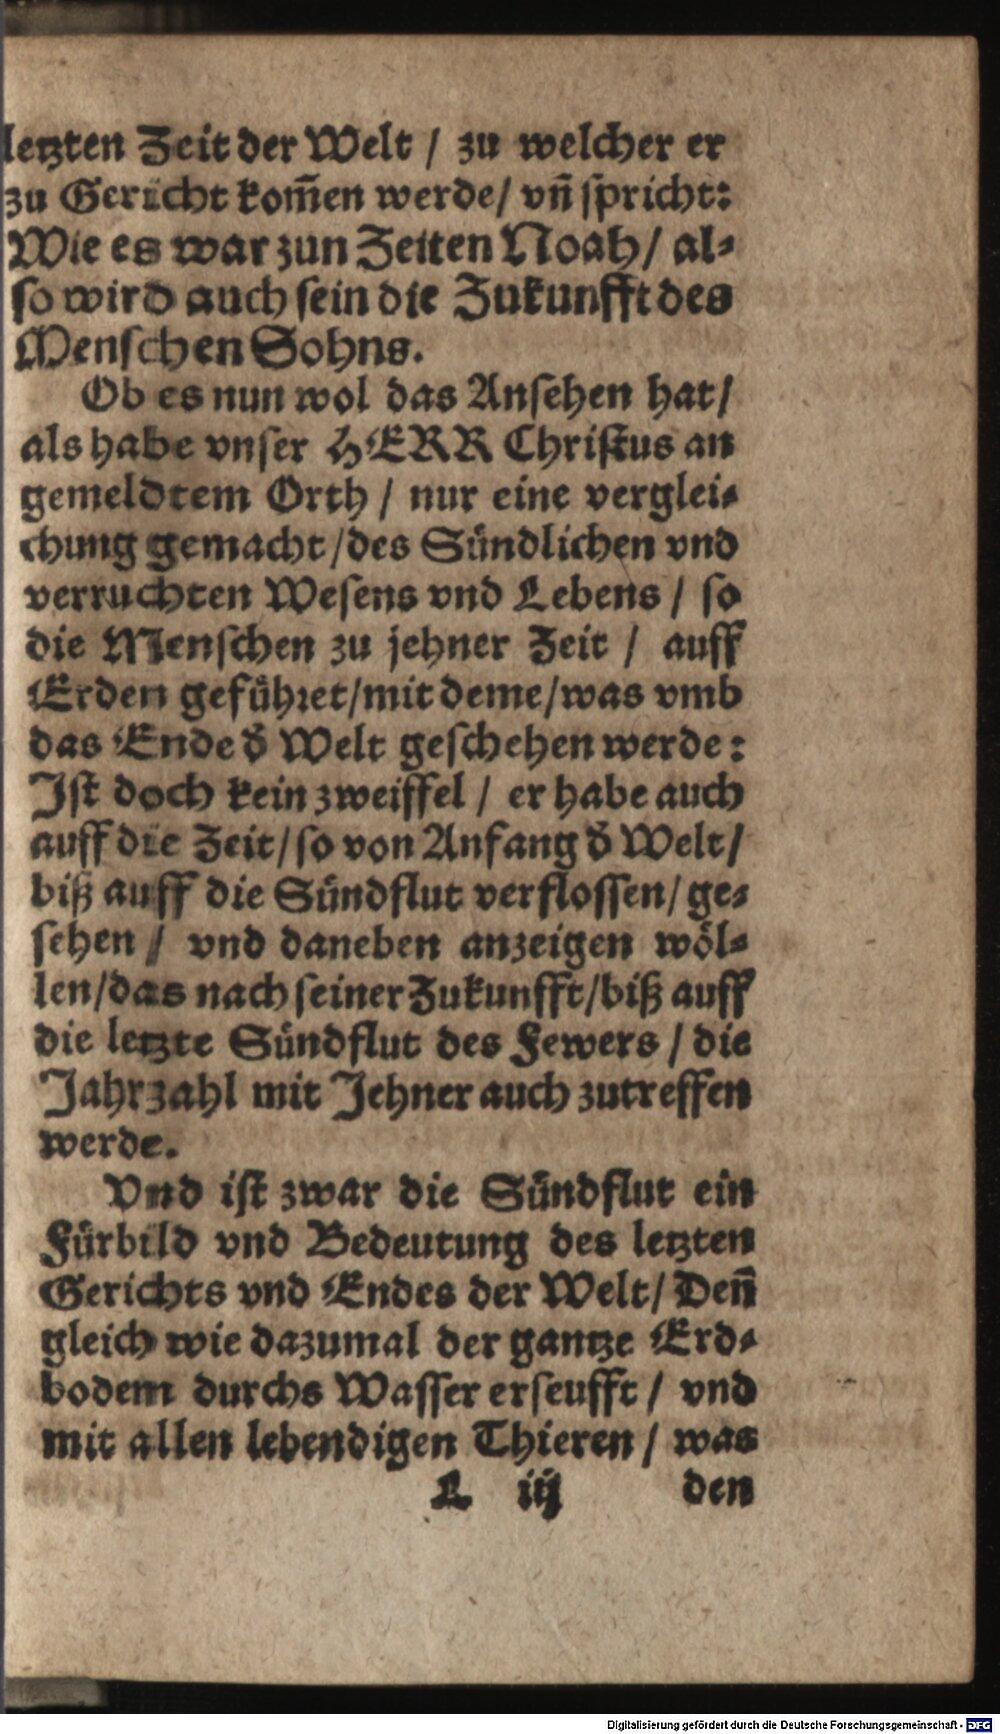 letzten Zeit der Welt / zu welcher er
zu Gericht kom̃en werde / vñ spricht:
Wie es war zun Zeiten Noah / al-
so wird auch sein die Zukunfft des
Menschen Sohns.
Ob es nun wol das Ansehen hat /
als habe vnser HERR Christus an
gemeldtem Orth / nur eine verglei-
chung gemacht / des Sündlichen vnd
verruchten Wesens vnd Lebens / so
die Menschen zu jehner Zeit / auff
Erden geführet / mit deme / was vmb
das Ende d̕ Welt geschehen werde:
Ist doch kein zweiffel / er habe auch
auff die Zeit / so von Anfang d̕ Welt /
biß auff die Sündflut verflossen / ge-
sehen / vnd daneben anzeigen wöl-
len / das nach seiner Zukunfft / biß auff
die letzte Sündflut des Fewers / die
Jahrzahl mit Jehner auch zutreffen
werde.
Vnd ist zwar die Sündflut ein
Fürbild vnd Bedeutung des letzten
Gerichts vnd Endes der Welt / Deñ
gleich wie dazumal der gantze Erd-
bodem durchs Wasser erseufft / vnd
mit allen lebendigen Thieren / was
L iij den
Digitalisierung gefördert durch die Deutsche Forschungsgemeinschaft - DFG